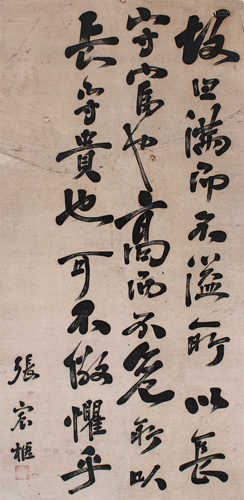 故曰滿而不溢所以長
守富也高而不危所以
長守貴也可不儆懼乎
張宸樞